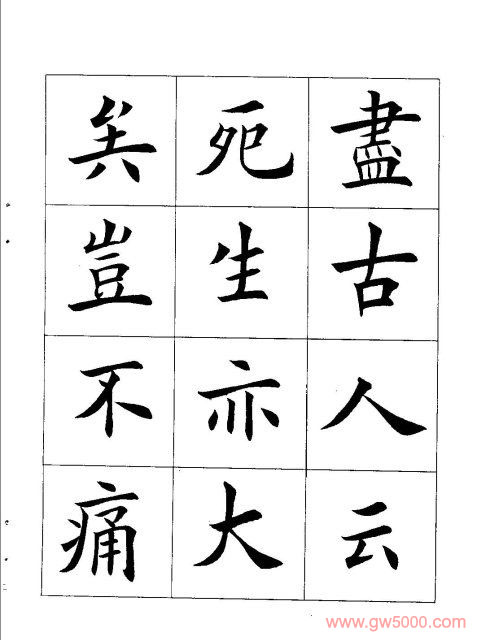 盡古人云
死生亦大
矣豈不痛
www.gw5000.com